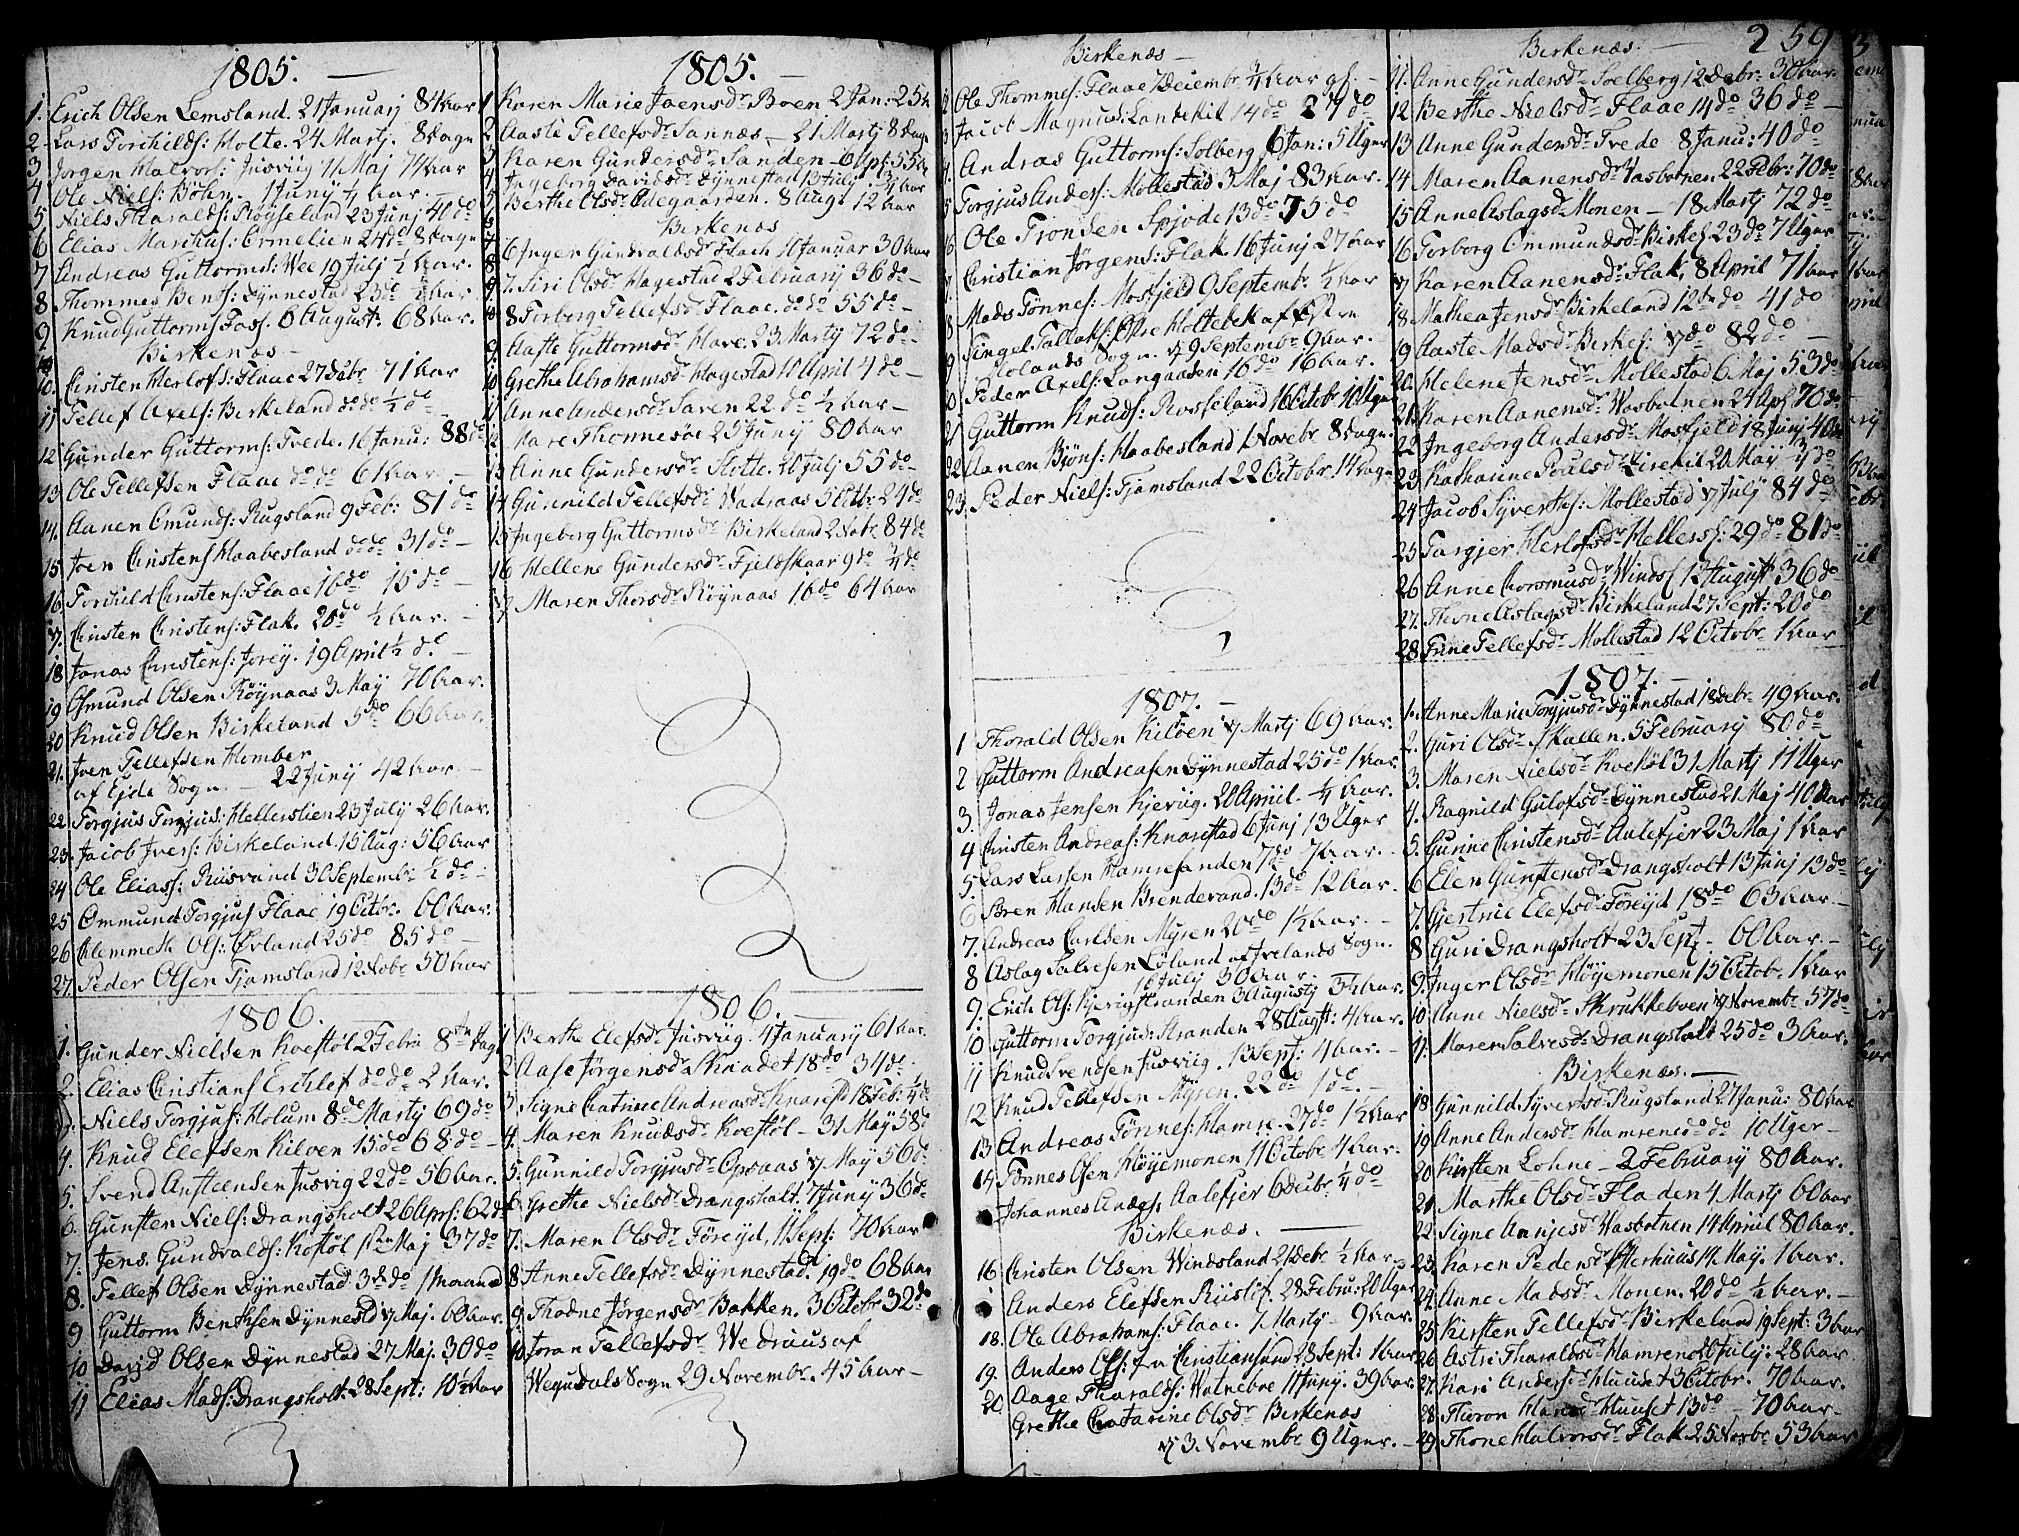 1805. —
1. Erich Olsen Lemsland. 21 Januarj 84 Aar
2. Lars Torchilds: Holte. 24 Martj. 8 Dagn
3 Jorgen Halvors: Jusviig 11 Maj 74 Aar
4. Ole Niels: Böhn. 1 Junij ½ Aar. —
5 Niels Tharalds: Röyseland 23 Junj 40 do
6 Elias Marchus: Ormelien 24 do 8 Dagn
7 Andreas Guttorms: Wee 19 Julj ½ Aar.
8. Thommes Bents: Dÿnnestad 23 do ½ Aar
9 Knud Guttorms Foss. 6 August. 68 Aar.
Birkenæs —
10. Christen Herlofs: Flaae 27 Dcbr. 71 Aar
11 Tellef Axels: Birkeland do do ½ do
12 Gunder Guttorms: Tvede. 16 Janu: 88 do
13 Ole Tellefsen Flaae do do 61 Aar. —
14. Aanen Omunds: Rugsland 9 Feb: 81 do
15 Joen Christens Haabesland do do 31 do —
16 Torkild Christens: Flaae 16 do 15 do —
17. Christen Christens: Flak. 20 do ½ Aar. —
18 Jonas Christens: Jorey. 19 April ½ do. —
19 Osmund Olsen Röynaas 3 May 70 Aar.
20 Knud Olsen Birkeland 5 do 66 Aar.
21. Joen Tellefsen Homber
af Ejde Sogn. — 22 Junij 42 Aar. —
22 Torgjus Torgjus: Hellerslien 23 July 26 Aar.
23. Jacob Ivers: Birkeland. 15 Aug: 56 Aar
24 Ole Elias: Riisvand 30 Septembr ½ do —
25 Ommund Torgjus Flaae 19 Octbr. 60 Aar.
26 Clemmeth Ols: Örland 25 do 85 do —
27. Peder Olsen Tjamsland 12 Nobr 50 Aar
1806. —
1. Gunder Nielsen Koestöl 2 Febru 8 Dage
2. Elias Christians Erchlef do do 2 Aar.
3. Niels Torgjus: Holum 8 de Martj 69 do
4. Knud Elefsen Kilöen 15 do 68 do —
5. Svend Anstensen Jusvig 22 do 56 Aar.
6. Gunsten Niels: Drangsholt 26 Apr: 62 do
7. Jens Gundvalds: Kostöl 1 Maj 37 do
8. Tellef Olsen Dÿnnestad 3 do 1 Maaned
9 Guttorm Benthsen Dÿnnestd 17 Maj. 60 Aar.
10 David Olsen Dÿnnestad 27 Maj. 30 do
11 Elias Mads: Drangsholt. 28 Sept: 10½ Aar
1805. —
1 Karen Marie Joensdr Boen 2 Jan: 25 A
2. Aaste Tellefsdr Sannæs — 21 Martj 8 Dagn
3 Karen Gundersdr Sanden — 6 Apr: 55 A
4. Ingeborg Davidsdr Dÿnnestad 13 July ¾ Aar
5 Berthe Olsdr Ödegaarden. 8 Aug: 12 Aar
Birkenæs
6 Inger Gundvaldsdr Flach 10 Januar 30 Aar
7. Siri Olsdr Hagestad 2 Februarij 36 do —
8 Torborg Tellefsdr Flaae. do do 55 do —
9. Aaste Guttormsdr Have. 23 Martij 72 do —
10 Grethe Abrahamsd Hagestad 10 April 4 do —
11 Anne Andersdr Saren 22. do ½ Aar —
12 Mare Thonnesöe 25 Junij 80 Aar
13 Anne Gundersdr Slotte. 20 Julj 55 do —
14 Gunnild Tellefsdr Vadraas 5 Octb: 24 do
15 Ingeborg Guttormsdr Birkeland 2 Nobr 84 do
16 Hellene Gundersdr Fjeldskaar 9 do ¾ do
17 Maren Thorsdr Röynaas 16 do 64 Aar
1806. —
1 Berthe Elefsdr Jusviig. 4 Januarij 61 Aar.
2 Aase Jörgensdr Skradet 18 do 34 do.
3. Signe Catrine Andreasdr Knarestd 18 Feb: ¼ do
4. Maren Knudsdr Koestöl — 31 May 58 do
5. Gunnild Torgjusdr Opsaas 17 May 56 do.
6. Grethe Nielsdr Drangsholt. 7 Junij 36 do.
7. Maren Olsdr Föreijd, 11 Sept: 70 Aar
8 Anne Tellefsdr Dÿnnestad. 19 do 68 Aar
9. Thodne Jörgensdr Bakken. 3 Octobr 32 do
10 Joran Tellefsdr We Druus af
Wegusdals Sogn 29 Novembr. 45 Aar —
Birkenæs —
2 Ole Thommes: Flaae 7 Decembr ¾ Aar gl. —
3 Jacob Magnus: Landekil 14 do 27 do
4. Andras Guttorms: Solberg 6 Jan: 5 Uger
5 Torgjus Anders: Mollestad 3 Maj 83 Aar.
6 Ole Tronsen Spjode 13 do 75 do
7. Christian Jörgens: Flak. 16 Junj 27 Aar
8 Mads Tönnes: Mosfjeld 9 Septembr ½ Aar
9 Singel Tallaks: Östre Holtebek af Östre
Molands Sogn. 19 Septembr. 9 Aar. —
10 Peder Axels: Langaasen 16 do 16 Aar.
21 Guttorm Knuds: Rosseland 16 Octobr 10 Uger
22 Aanen Björs: Haabesland 1 Novebr. 8 Dagn.
23. Peder Niels: Tjamsland 22 Octobr. 14 Dagn
1807. —
1 Thorald Olsen Kilöen 17 Martj 69 Aar.
2 Guttorm Andreasen Dÿnnestad 25 do 1 Aar.
3. Jonas Jensen Kjeviig. 20 April. ¼ Aar.
4 Christen Andreas: Knarestad 6 Junj 13 Uger
5. Lars Larsen Hamresanden 7 do 7 Aar. —
6 Sören Hansen Brendevand. 13 do 12 Aar. —
7. Andreas Carlsen Myren 20 do 1½ Aar. —
8 Aslag Salvesen Löland af Ivelands Sogn.
16 July 30 Aar.
9. Erich Ols: Kjerigstranden 3 Augusty 3½ Aar.
10 Guttorm Torgjus: Stranden 28 Augst: 4 Aar.
11 Knud Svendsen Jusviig. 13 Sept: 4 Aar. —
12 Knud Tellefsen Myren. 22 do 1 do. —
13 Andreas Tönnes: Hamre. 27 do 1½ Aar
14 Tönnes Olsen Höyemonen 11 Octobr 4 Aar.
Johannes Anders Aalefjer 6 Debr: ¼ do
Birkenæs. —
16 Christen Olsen Windsland 21 Debr ½ Aar —
Anders Elefsen Riislöf. 28 Febru: 20 Uger
18. Ole Abrahams: Flaae. 7 Martij — 9 Aar.
19. Anders Ols: fra Christiansand 28 Sept: 1 Aar
20 Aage Tharalds: Watnebroe 11 Junj. 39 Aar.
Grethe Catarine Olsdr Birkenæs
13 Novembr 9 Uger. —
Birkenæs. — 259
11. Anne Gundersdr Soelberg 12 Debr: 30 Aar.
12 Berthe Nielsdr Flaae 14 do 36 do —
13 Anne Gundersdr Tvede 8 Janu: 40 do
14 Maren Aanensdr Vasbotnen 22 Febr: 70 do
15 Anne Aslagsdr Monen — 18 Martj 72 do
16 Torborg Ommundsdr Birkes 23 do 7 Uger
17 Karen Aanensdr Flak. 8 April 71 Aar
18. Mathea Jensdr Birkeland 12 te do 41 do
19 Aaste Madsdr Birkes: 17 do 82 do —
20. Helene Jensdr Mollestad 6 Maj 53 do
21. Karen Aanensdr Wasbotnen 24 Apr 70 do
22 Ingeborg Andersdr Mosfjeld 18 Junj 40 do
23. Kathanne Poulsdr Lirekil 20 May ¾ do
24 Jacob Syverths: Mollestad 17 Julj 84 do
25 Torgjer Herlofsdr Hellers: 29 do 81 do
26 Anne Aorsmusdr Winds 13 August 36 do
27. Thorne Aslagsdr Birkeland 27 Sept: 20 do
28 Trine Tellefsdr Mollestad 12 Octobr. 1 Aar
1807. —
1. Anne Marie Torgjusdr Dÿnnestad 18 Debr 49 Aar.
2. Guri Olsdr Skallen. 5 Februarij 80 do
3. Maren Nielsdr Koestöl 31 Martj 11 Uger
4. Ragnild Gulofsdr Dÿnnestad 21 Maj 40 Aar
5. Gurine Christensdr Aalefjer 23 Maj 1 Aar
6 Elen Gunstensdr Drangsholt 13 Junj 13 do
7. Gjertrue Elefsdr Föreijd 18 do 63 Aar. —
8 Guri Drangsholt 23 Sept — 60 Aar. —
9. Inger Olsdr Höyemonen 15 Octobr. 1 Aar
10 Anne Nielsdr Skrukkeboen 17 Novembr. 57 do
11. Maren Salvesdr Drangsholt 25 do 3 Aar.
Birkenæs. —
18 Gunnild Syversdr Rugsland 27 Janu: 80 Aar
19 Anne Andersdr Hamrene do do 10 Uger —
20 Kirsten Lohne — 2 Februarij 80 Aar.
21. Marthe Olsdr Fladen 4 Martj 60 Aar
22. Signe Aanjesdr Wasbotnen 14 April 80 Aar.
23. Karen Pedersdr Öfterhuus 14 May. 1 Aar.
24. Anne Madsdr Monen. 20 do ½ Aar. —
25 Kirsten Tellefsdr Birkeland 19 Sept: 3 Aar
26 Astri Tharaldsdr Hamren 20 July. 28 Aar
27. Kari Andersdr Huuset 3 Octobr. 70 Aar.
28 Thoron Hansdr Huuset 13 do — 70 Aar —
29. Thone Halvorsdr Flak 25 Novbr 53 Aar